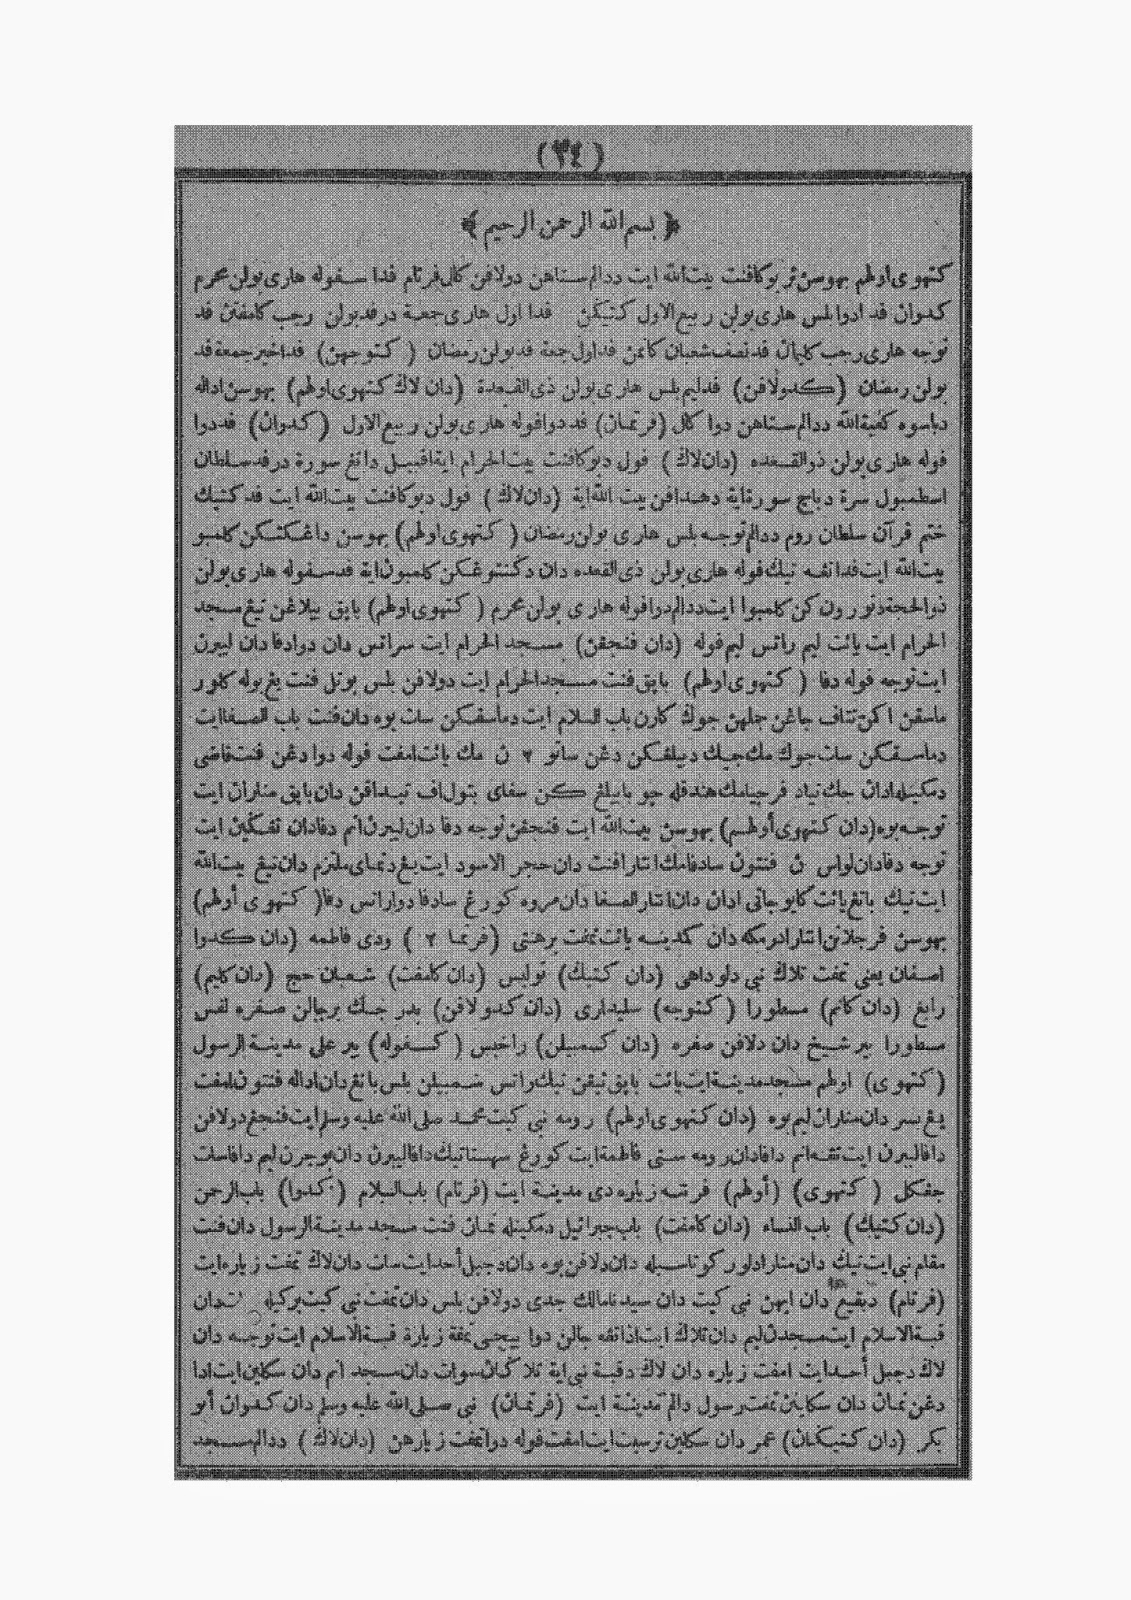 (٣٤)
﴿ بسم الله الرحمن الرحيم ﴾
كتهوي اولهم بهوسن تربوكافنت بيت الله ايت ددالم ستاهن دولافن كال فرتام فدا سفوله هاري بولن محرم
كدوان فد ادوا بلس هاري بولن ربيع الاول كتيكن فدا اول هاري جمعة درفد بولن رجب كامفتن فد
توجه هاري رجب كليمان فد نصف شعبان كانمن فد اول جمعة فد بولن رمضان ( كتوجهن) فد اخير جمعة فد
بولن رمضان (كدولافن) فد ليم بلس هاري بولن ذي القعدة (دان لاڬ كتهوي اولهم) بهوسن اداله
دباسوه كعبة الله ددالم ستاهن دوا كال (فرتمان) فد دوافوله هاري بولن ربيع الاول (كدوان) فد دوا
فوله هاري بولن ذوالقعده (دان لاڬ) فول دبوكافنت بيت الحرام ايت اافبيل داتڠ سورة درفد سلطان
اسطمبول سرة دباچ سورة ايت دهدافن بيت الله ايت (دان لاڬ) فول دبوكافنت بيت الله ايت فد كتيك
ختم قرآن سلطان روم ددالم توجه بلس هاري بولن رمضان ( كتهوي اولهم) بهوسن داڠكتكن كلمبو
بيت الله ايت فدا تڠه تيك فوله هاري بولن ذي القعده دان دڬنتوڠكن كلمبون ايت فد سفوله هاري بولن
ذوالحجة دتورون كن كلمبوا ايت ددالم دوا فوله هاري بولن محرم ( كتهوي اولهم) باپق بيلاڠن تيڠ مسجد
الحرام ايت يائت ليم راتس ليم فوله (دان فنجڠن) مسجد الحرام ايت سراتس دان دوا دفا دان ليبرن
ايت توجه فوله دفا ( كتهوي اولهم) باپق فنت مسجد الحرام ايت دولافن بلس بوتل فنت يڠ بوله كلور
ماسقن اكن تتاف جاڠن جلهن جوڬ كارن باب السلام ايت دماسقكن سات بوه دان فنت باب الصفا ايت
دماسقكن سات جوڬ مك جيك دبيلڠكن دڠن ساتو ٢ ن مك يائت امفت فوله دوا دڠن فنت قاضي
توجه بوه (دان كتهوي أولهم) بهوسن بيت الله ايت فنجڠن توجه دفا دان ليبرن انم دفا دان تڠڬين ايت
توجه دفا دان لواس ن فنتون سادفا مك انتارا فنت دان حجر الاسود ايت يڠ دنماي ملتزم دان تيڠ بيت الله
ايت تيك باتڠ يائت كايو جاتي ادان دان انتار الصفا دان مروه كورڠ سادفا دوا راتس دفا( كتهوي أولهم)
بهوسن فرجلانن انتارا درمكه دان كمدينه يائت تمفت برهنتي (فرتما ٢ ) ودي فاطمه (دان كدوا
اصفان يعني تمفت تلاڬ نبي دلوداهي (دان كتيك) توليس (دان كامفت) شعبان حج (دان كليم)
رابغ (دان كانم) مسطورا ( كتوجه) سليداري (دان كدولافن) بدر جك برجالن صفره لفس
مسطورا بير شيخ دان دلافن صفره (دان كسمبيلن) راخيس ( كسفوله) بير علي مدينة الرسول
(كتهوي) اولهم مسجد مدينة ايت يائت باپق تيڠن تيك راتس سمبيلن بلس باتڠ دان اداله فنتون امفت
يڠ بسر دان منارن ليم بوه (دان كتهوي اولهم) رومه نبي كيت محمد صلى الله عليه وسلم ايت فنجڠ دولافن
دفا ليبرن ايت تڠه انم دفا دان رومه ستي فاطمة ايت كورڠ سهستا تيك دفا ليبرن دان بوجرن ليم دفا سات
جڠكل ( كتهوي) (أولهم) فرتمه زياره دي مدينة ايت (فرتام) باب السلام (كدوا) باب الرحمن
(دان كتيك) باب النساء (دان كامفت) باب جبرائيل دمكينله نمان فنت مسجد مدينة الرسول دان فنت
مقام نبي ايت تيك دان منارا دلور كوتا سبله دان دلافن بوه دان دجبل أحد ايت سات دان لاڬ تمفت زياره ايت
(فرتام) دبقيع دان ايبهن نبي كيت دان سيدنا مالك جدي دولافن بلس دان تمفت نبي كيت بركيله دان
قبة الاسلام ايت مسجدن ليم دان تلاڬ ايت اد اتفه جالن دوا بيجي تمفة زيارة قبة الاسلام ايت توجه دان
لاڬ دجبل أحد ايت امفت زياره دان لاڬ دقبة نبي ايت تلاڬان سوات دان مسجد انم دان سكلين ايت ادا
دڠن نمان دان سكلين تمفت رسول دالم مدينة ايت (فرتمان) نبي صلى الله عليه وسلم دان كدوان أبو
بكر (دان كتيكان) عمر دان سكلين ترسبت ايت امفت فوله دوا تمفت زيارهن (دان لاڬ) ددالم مسجد